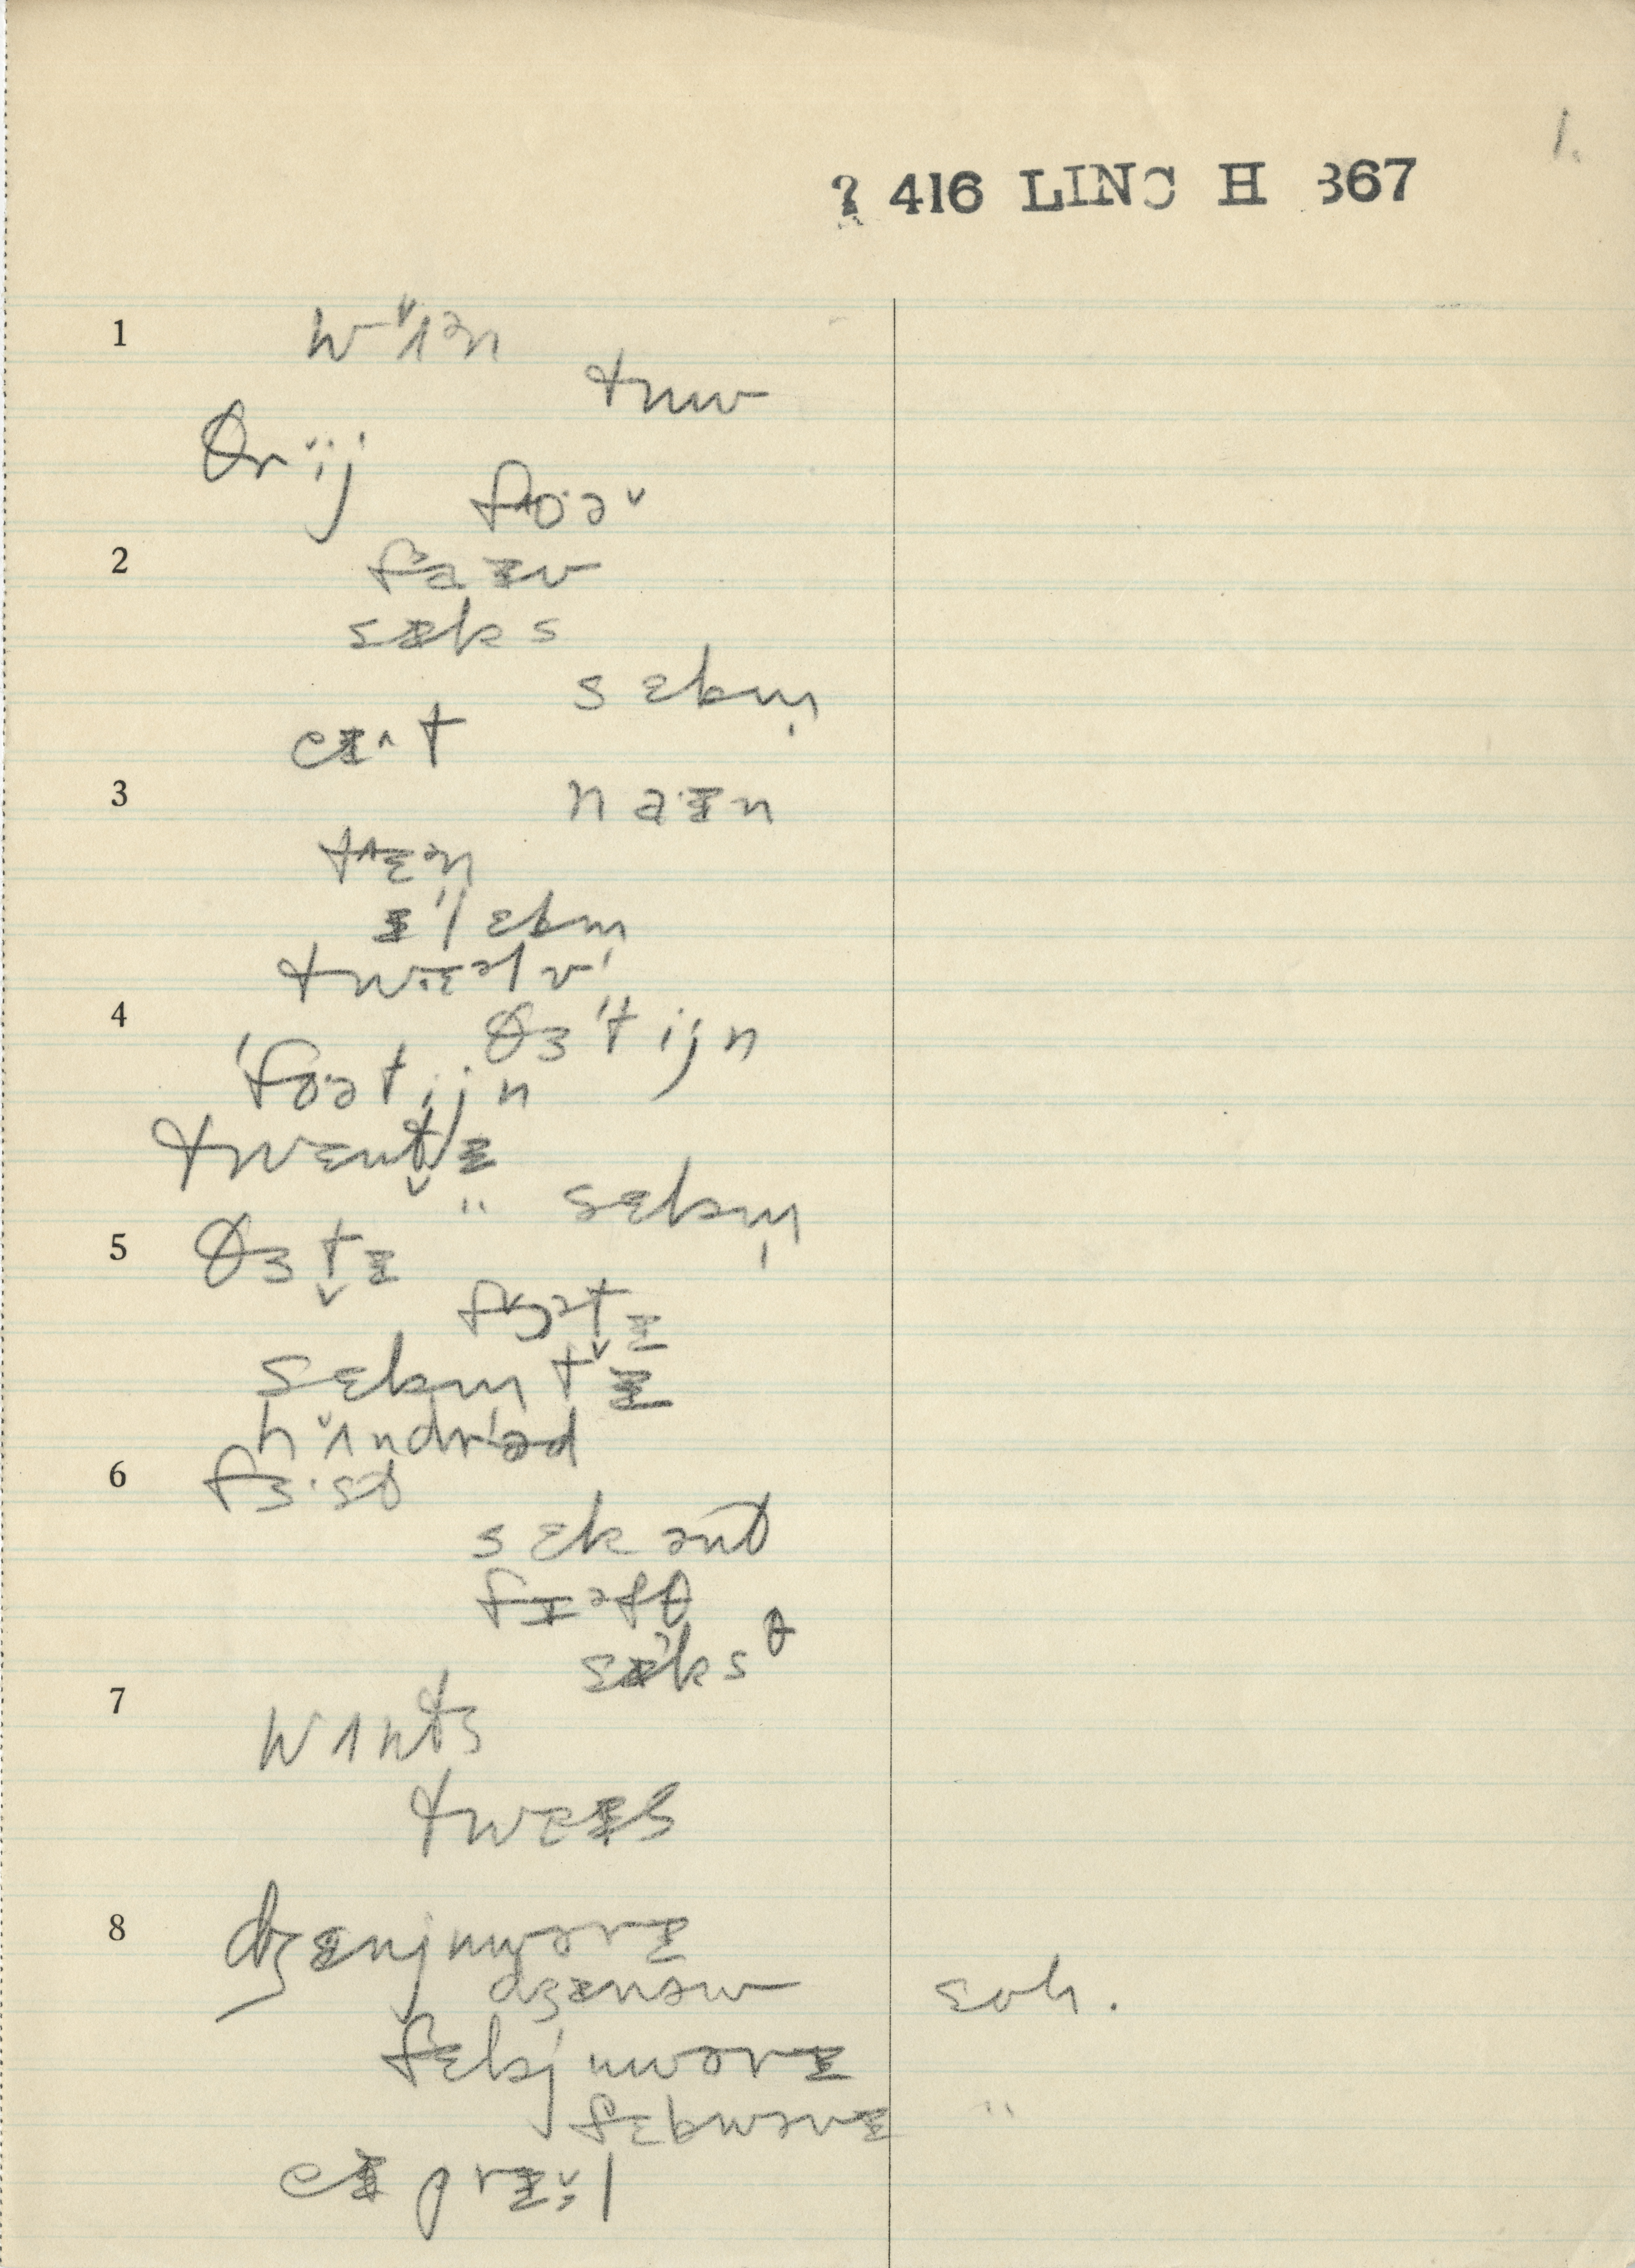 1.
? 416 LINC H 367
1 wʌ̌ᵊn
tuw
θrĭij
foˑəˇ
2 faɪv
sɪks
sɛbm̩
eɪ^t
3 naˑɪn
tʌɛᵊn
ɪˈlɛbm̩
twɛᵊlv
4 θɜˈtijn
ˈfoətijn
twɛntɪ
" sɛbm̩
5 θɜt̬ɪ
fɔət̬ɪ
sɛbmt̬ɪ
hʌ̌ndrəd
6 fɜˑst
sɛkənt
fɪəfθ
sɪksθ
7 wʌnts
twɛɪs
8 dʒɛnjuwərɪ
dʒɛnəw
ɛoh.
fɛbjuwərɪ
fɛbwərɪ "
eɪprɪˑl